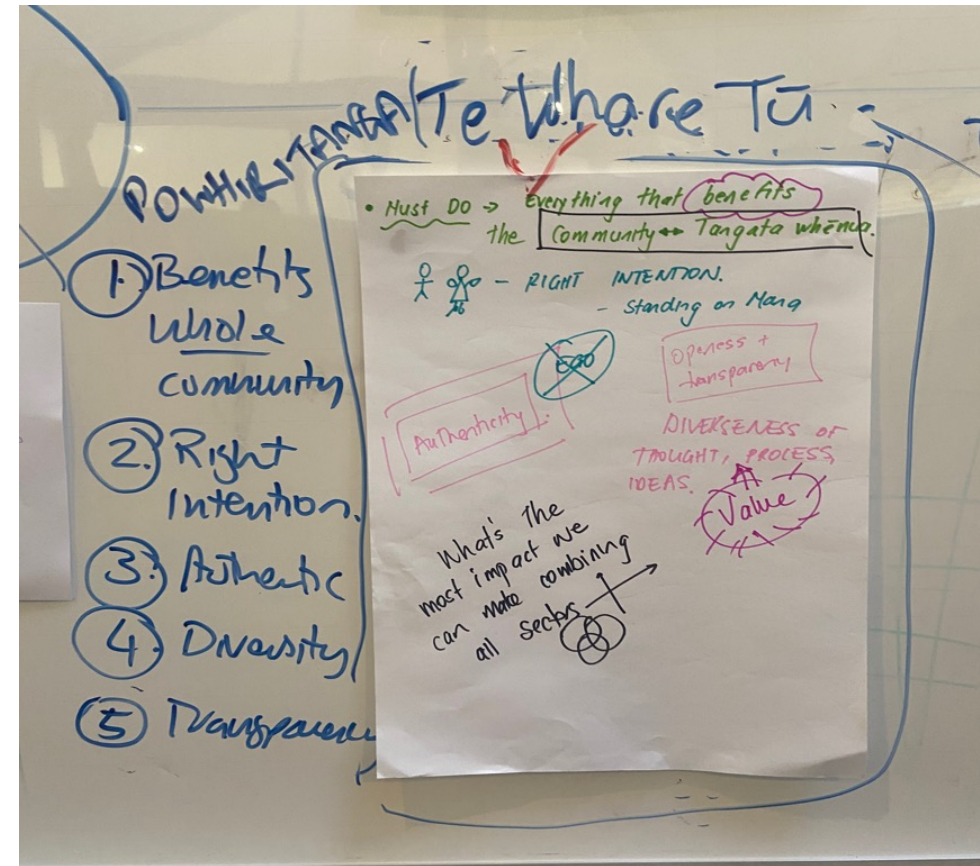 POWHIRITANGA/Te Whare Tū
1. Benefits
Whole
community
2. Right
Intention.
3. Authentic
4. Diversity
5 Transparen
• Must DO → Everything that benefits
the Community ↔ Tangata whēnua.
- RIGHT INTENTION.
- Standing on Mana
EGO
Authenticity
Openess +
transparency
DIVERSENESS OF
THOUGHT, PROCESS,
IDEAS.
Value
What's The
most impact we
can make combining
all sectors